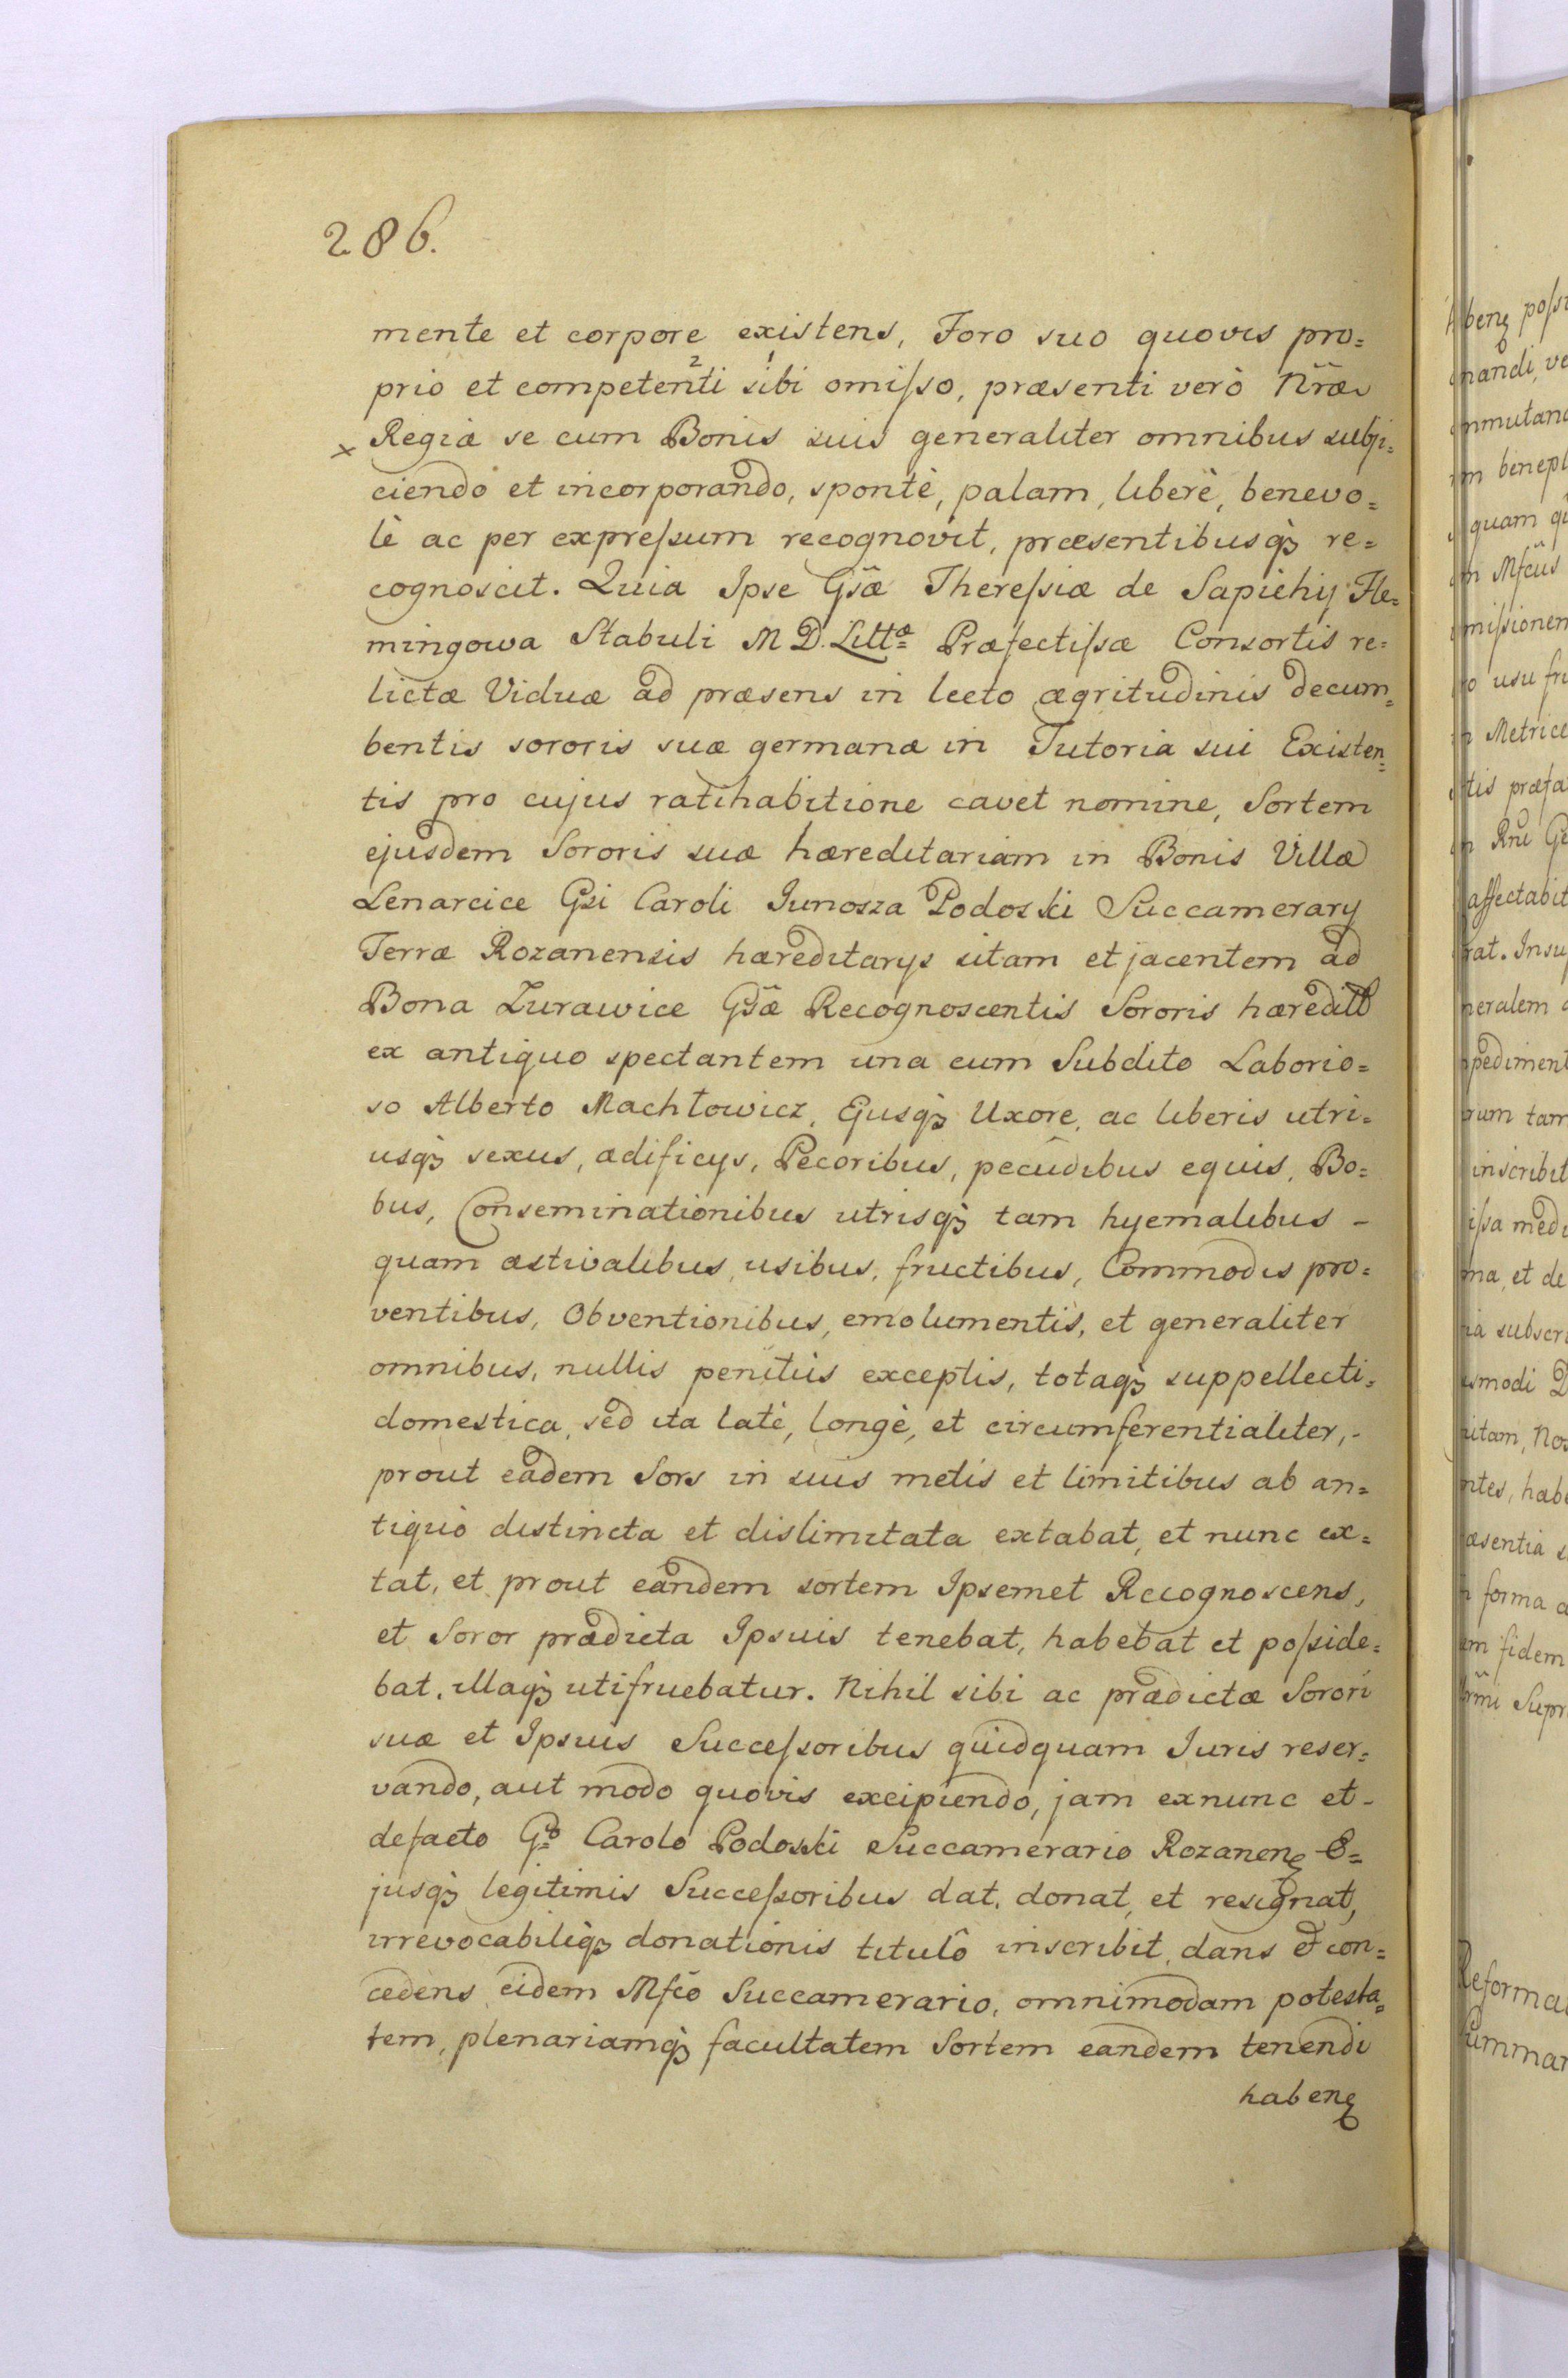 286.
mente et corpore existens, Foro suo quovis pro=
prio et competenti² sibi¹ omiſso, præsenti verò Nr̃æ
× Regiæ se cum Bonis suis generaliter omnibus subji=
ciendo et incorporando, spontè, palam, liberè, benevo=
lè ac per expreſsum recognovit, præsentibusqꝫ re=
cognoscit. Quia Ipse Gsæ̃ Thereſsiæ de Sapiehij Fle=
mingowa Stabuli M D. Littæ Præfectiſsæ Consortis re=
lictæ Viduæ ad præsens in lecto ægritudinis decum=
bentis sororis suæ germanæ in Tutoria sui Existen=
tis pro cujus ratihabitione cavet nomine, Sortem
ejusdem Sororis suæ hæreditariam in Bonis Villæ
Lenarcice Gsi Caroli Junosza Podoski Succamerarij
Terræ Rozanensis hæreditarijs sitam et jacentem ad
Bona Zurawice Gsæ̃ Recognoscentis Sororis hæredit
ex antiquo spectantem una cum Subdito Laborio=
so Alberto Machłowicz, Ejusqꝫ Uxore, ac liberis utri=
usqꝫ sexus, ædificijs, Pecoribus, pecudibus equis, Bo=
bus, Conseminationibus utrisqꝫ tam hyemalibus -
quam æstivalibus, usibus, fructibus, Commodis pro=
ventibus, Obventionibus, emolumentis, et generaliter
omnibus, nullis penitùs exceptis, totaqꝫ suppellecti=
domestica, sed ita latè, longè, et circumferentialiter, -
prout eadem Sors in suis metis et limitibus ab an=
tiquò distincta et dislimitata extabat, et nunc ex=
tat, et prout eandem sortem Ipsemet Recognoscens,
et Soror prædicta Ipsius tenebat, habebat et poſside=
bat, illaqꝫ utifruebatur. Nihil sibi ac prædictæ Sorori
suæ et Ipsius Succeſsoribus quidquam Juris reser=
vando, aut modo quovis excipiendo, jam exnunc et -
defacto Gdo Carolo Podoski Succamerario Rozanenę E=
jusqꝫ legitimis Succeſsoribus dat, donat, et resignat,
irrevocabiliqꝫ donationis titulô inscribit, dans et con=
cedens eidem Mfcõ Succamerario, omnimodam potesta=
tem, plenariamqꝫ facultatem Sortem eandem tenendi
habenę